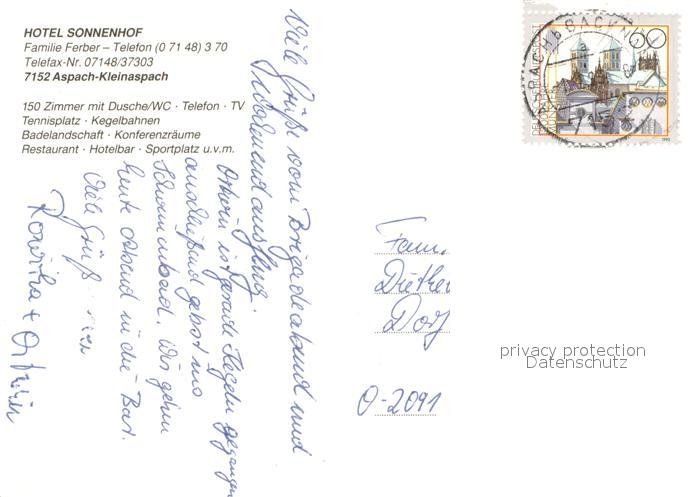 HOTEL SONNENHOF
Familie Ferber – Telefon (0 71 48) 3 70
Telefax-Nr. 07148/37303
7152 Aspach-Kleinaspach
150 Zimmer mit Dusche/WC · Telefon · TV
Tennisplatz · Kegelbahnen
Badelandschaft · Konferenzräume
Restaurant · Hotelbar · Sportplatz u.v.m.
Viele Grüße vom Brigadeabend und
Wochenendausflug.
ist gerade Kegeln gegangen
anschließend gehts ins
Schwimmbad. Wir gehen
heute abend in die Bar.
Viele Grüß
Roswitha +
60
Fam.
Diether
Dorf
O-2091
privacy protection
Datenschutz